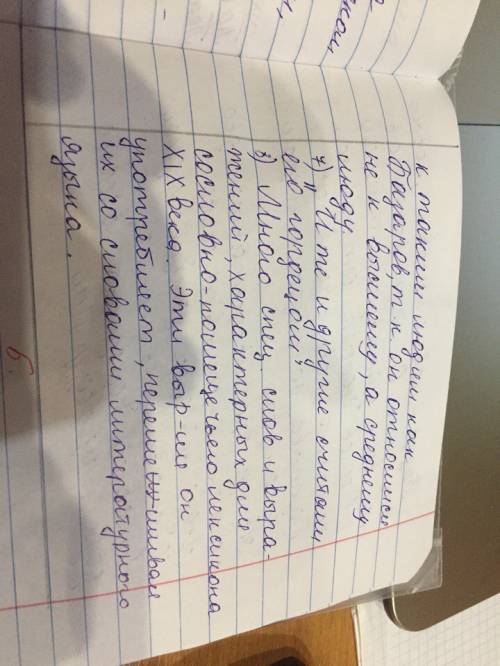 к таким людям как
Базаров, т к он относился
не к высшему, а среднему
люду
7) "И те и другие считали
его гордецом"
8) Много спец. слов и выра-
жений, характерных для
сословно-помещечьего лексикона
XIX века. Эти выр-ия он
употребляет, перемешивая
их со словами литературного
языка.
5.